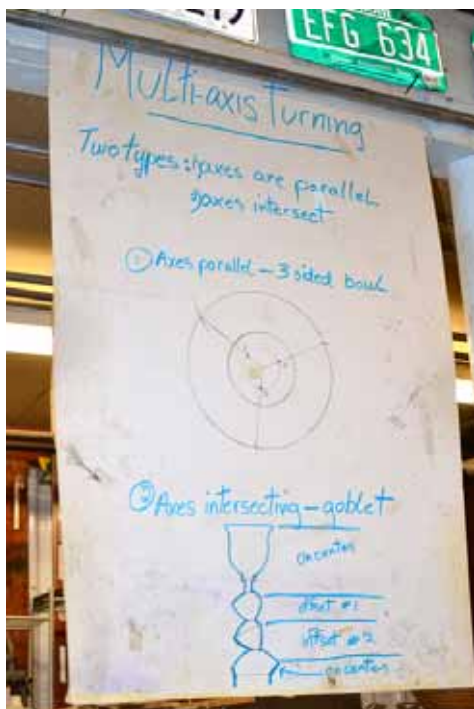 EFG 634
Multi-axis Turning
Two types: 1) axes are parallel
2) axes intersect
① Axes parallel – 3 sided bowl
② Axes intersecting – goblet
on center
offset #1
offset #2
on center